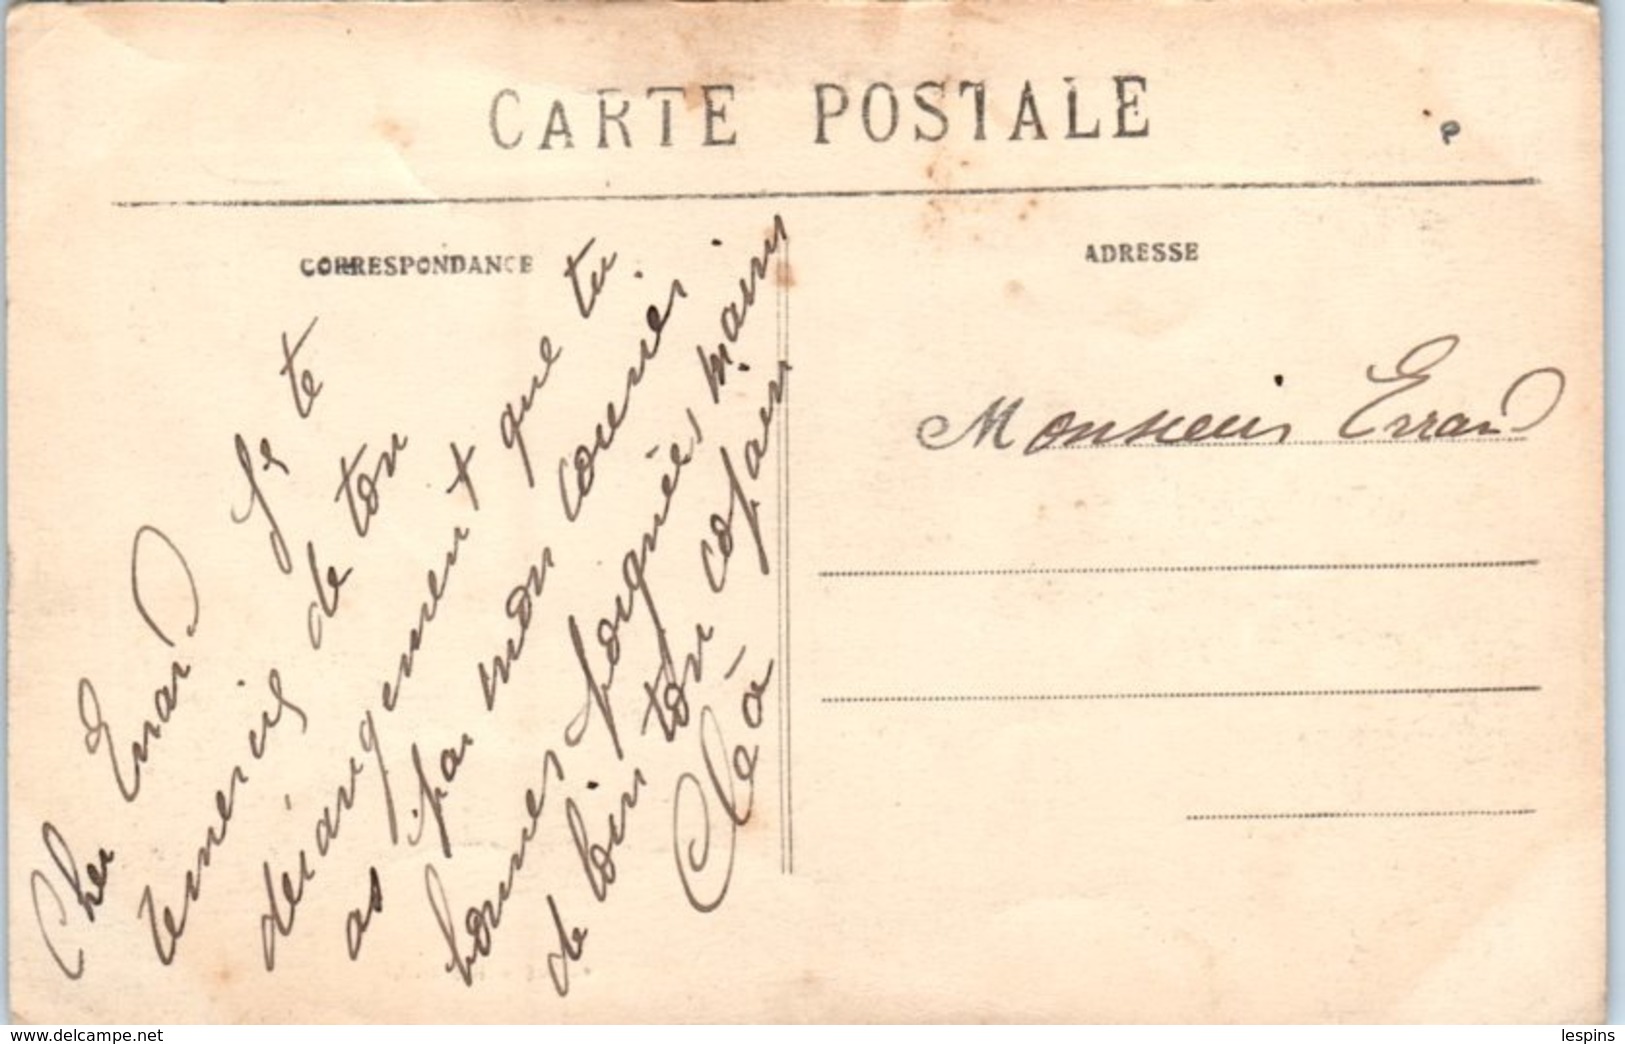 CARTE POSTALE
CORRESPONDANCE
ADRESSE
Cher Errard Je te
remercie de ton
dérangement que tu
as par mon courrier
bonnes poignées mains
de loin ton copain
Cléo
Monsieur Errard
www.delcampe.net
lespins